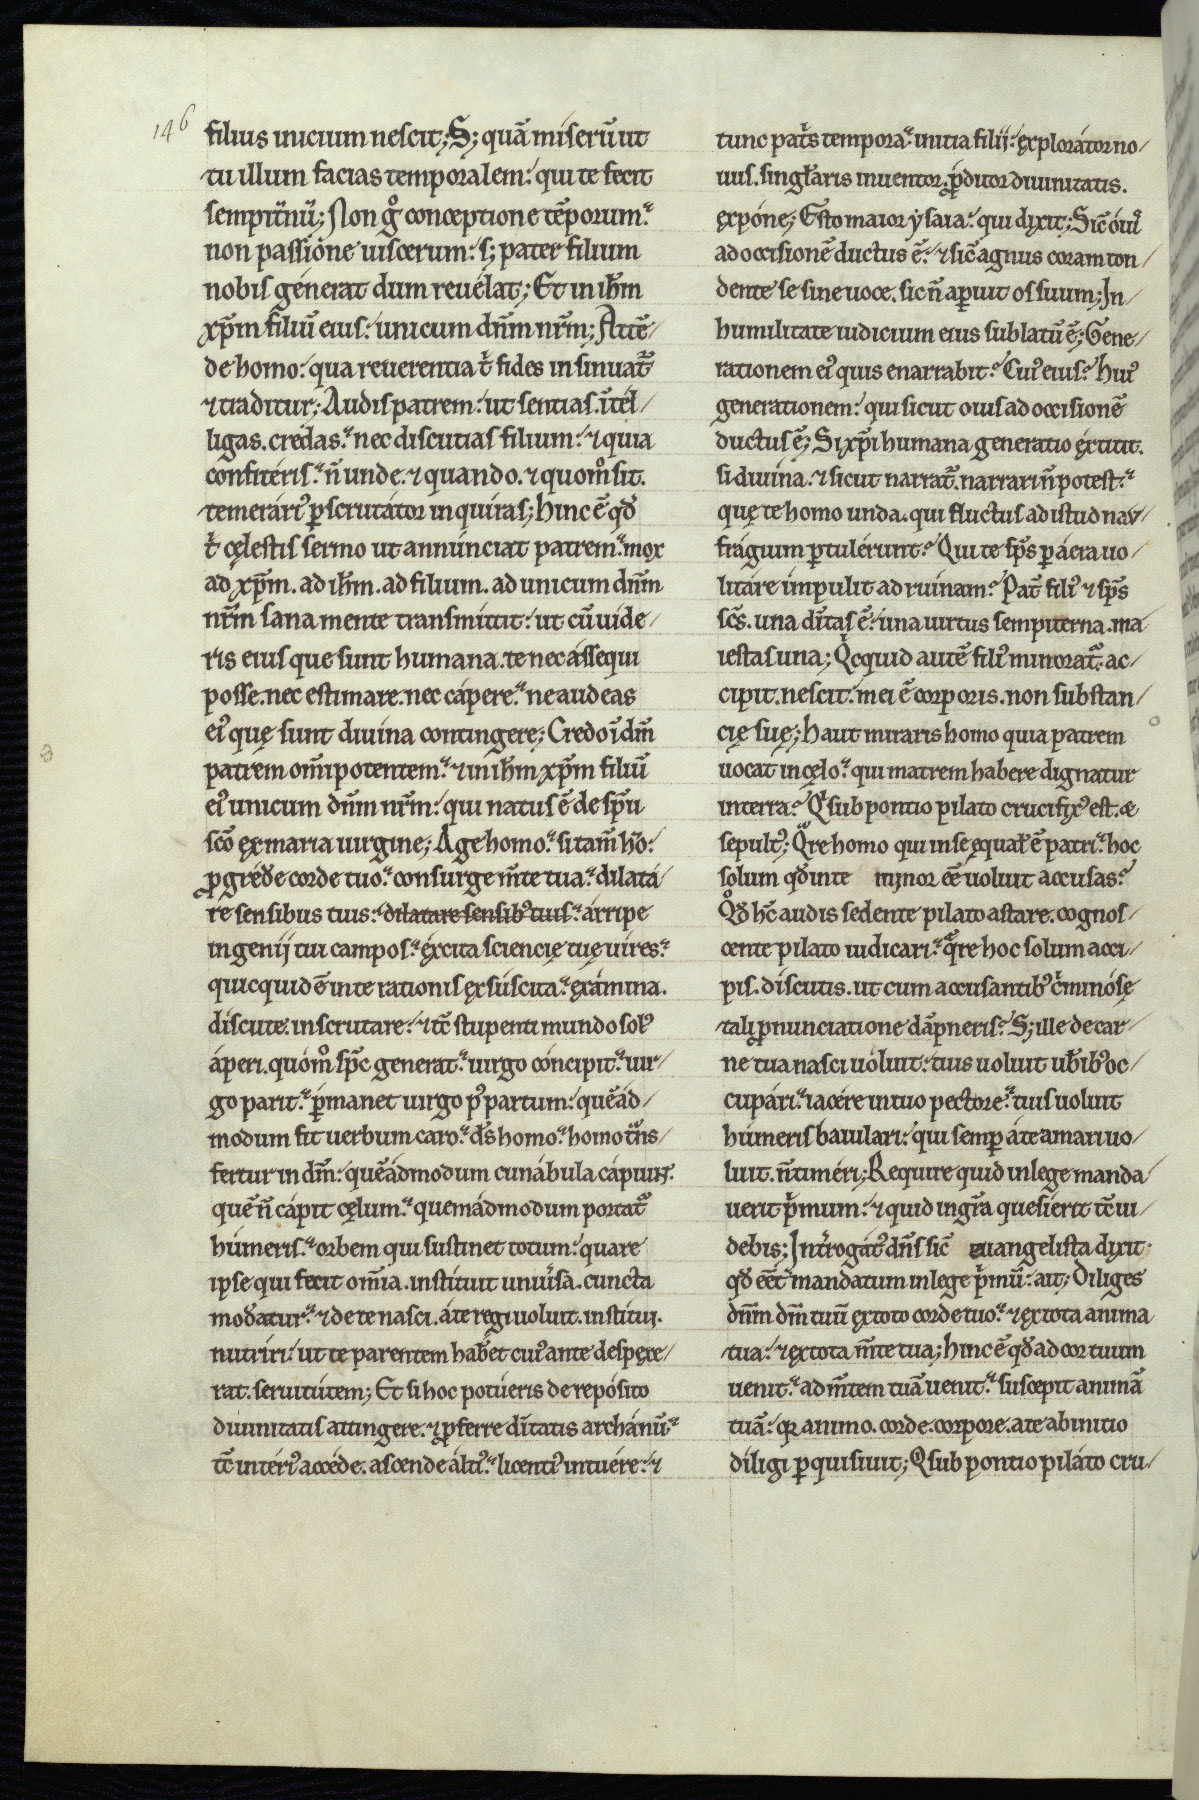 146
filius inicium nescit; S; quā miserū ut
tu illum facias temporalem: qui te fecit
sempit̄nū; Non g̊ conceptione tēporum:
non passióne uiscerum: s; pater filium
nobis génerat dum reuélat; Et in ih̄m
xp̄m filiū eius: unicum dn̄m nr̄m; Attē/
de homo: qua reuerentia t̄ fides insinuat̄
⁊ traditur; Audis patrem: ut sentias. ītél/
ligas. credas: nec discutias filium: ⁊ quia
confitéris: n̄ unde. ⁊ quando. ⁊ quom̊ sit.
temerári᾽ ꝑscrutátor inquíras; hinc ē qđ
t̄ cęlestis sermo ut annúnciat patrem: mox
ad xp̄m. ad ih̄m. ad filium. ad unicum dn̄m
nr̄m sana mente transmittit: ut cū uide/
ris eius que sunt humana. te nec ássequi
posse. nec estimare. nec cápere: ne audeas
ei᾽ quę sunt diuína contingere; Credo ī dm̄
patrem om̄ipotentem: ⁊ in ih̄m xp̄m filiū
ei᾽ unicum dn̄m nr̄m: qui natus ē de sp̄u
sc̄o ex maria uirgine; Age homo: si tam̄ hō:
ꝓgréđe corde tuo: consurge m̄te tua: dilatá/
re sensibus tuis: dilatare sensib᾽ tuis: árripe
ingenij tui campos: éxcita sciencię tuę uíres:
quicquid ē in te rationis exsúscita: exámina.
discute. inscrutare: ⁊ tē stupenti mundo sol᾽
áperi. quóm̊ sp̄c generat: uirgo cóncipit: uir/
go parit: ꝑmanet uirgo p᾽ partum: quēád/
modum fit uerbum caro: dś homo: homo tn̄s/
fertur in dm̄: quēádmodum cunábula cápiūt.
quē n̄ cápit cęlum: quemádmodum portat̄
húmeris: orbem qui sustinet totum: quare
ipse qui fecit om̄ia. instítuit uniu̓sa. cuncta
mođatur: ⁊ de te nasci. á te regi uoluit. institui.
nutríri: ut te parentem hab̄et cui᾽ ante despexe/
rat. seruitútem; Et si hoc potúeris de repósito
diuinitatis attingere. ⁊ ꝓferre dītatis archánū:
tc̄ intéri᾽ accéde. ascende álti᾽: licenti᾽ intuére: ⁊
tunc pat̄s tempora: initia filij: explorátor no/
uus. singl̄aris inuentor. ꝓditor diuinitatis.
expóne; Esto maior ysaia: qui dixit; Sic̄ óuī
ad occisionē ductus ē: ⁊ sic̄ agnus coram ton/
dente se sine uoce. sic n̄ aꝑuit os suum; In/
humilitate iudicium eius sublatū ē; Gene/
rationem ei᾽ quis enarrabit? Cui᾽ eius? hui᾽
generationem: qui sicut ouis ad occisionē
ductus ē; Si xp̄i humana generatio éxtitit.
si diuína. ⁊ sicut narrat̄. narrari n̄ potest:
quę te homo unda. qui fluctus ad istud nav/
frágium ꝑtulérunt? Qui te sp̄s ꝑ áera uo/
litáre ímpulit ad ruínam? Pat̄ fili᾽ ⁊ sp̄s
sc̄s. una dītas ē: una uirtus sempiterna. ma
iestas una; Qͥcquid autē fili᾽ minorat̄: ac/
cipit. nescit: mei ē corporis. non substan/
cię suę; haut miraris homo quia patrem
uocat in cęlo: qui matrem habere dignatur
in terra? Qͥ sub pontio pilato crucifix᾽ est. æ
sepult᾽; Qͣre homo qui in se equał ē patri: hoc
solum qđ in te minor eē uoluit accusas?
Qͦđ hc̄ audis sedente pilato astare. cognos/
cente pilato iudicari: qͣre hoc solum acci/
pis. díscutis. ut cum accusantib᾽ cͥminósę
tali ꝓnunciatione dāpneris? S; ille de car/
ne tua nasci uóluit: tuis uoluit ub̄ib᾽ oc/
cupári: iacére in tuo pectore: tuis uoluit
húmeris baiulari: qui semꝑ á te amari uo/
luit. n̄ timéri; Require quid in lege manda/
uerit pͥmum: ⁊ quid in gr̄a quesíerit tc̄ ui/
debis; Int̄rogát᾽ dn̄s sic̄ euangelista dixit.
qđ eēt mandatum in lege pͥmū: ait; Diliges
dn̄m dm̄ tuū ex toto corde tuo: ⁊ ex tota anima
tua: ⁊ ex tota m̄te tua; hinc ē qđ ad cor tuum
uenit: ad m̄tem tuā uenit: suscepit animā
tuā: qꝛ animo. corde. corpore. a te ab initio
díligi ꝑquisiuit; Qͥ sub pontio piláto cru/